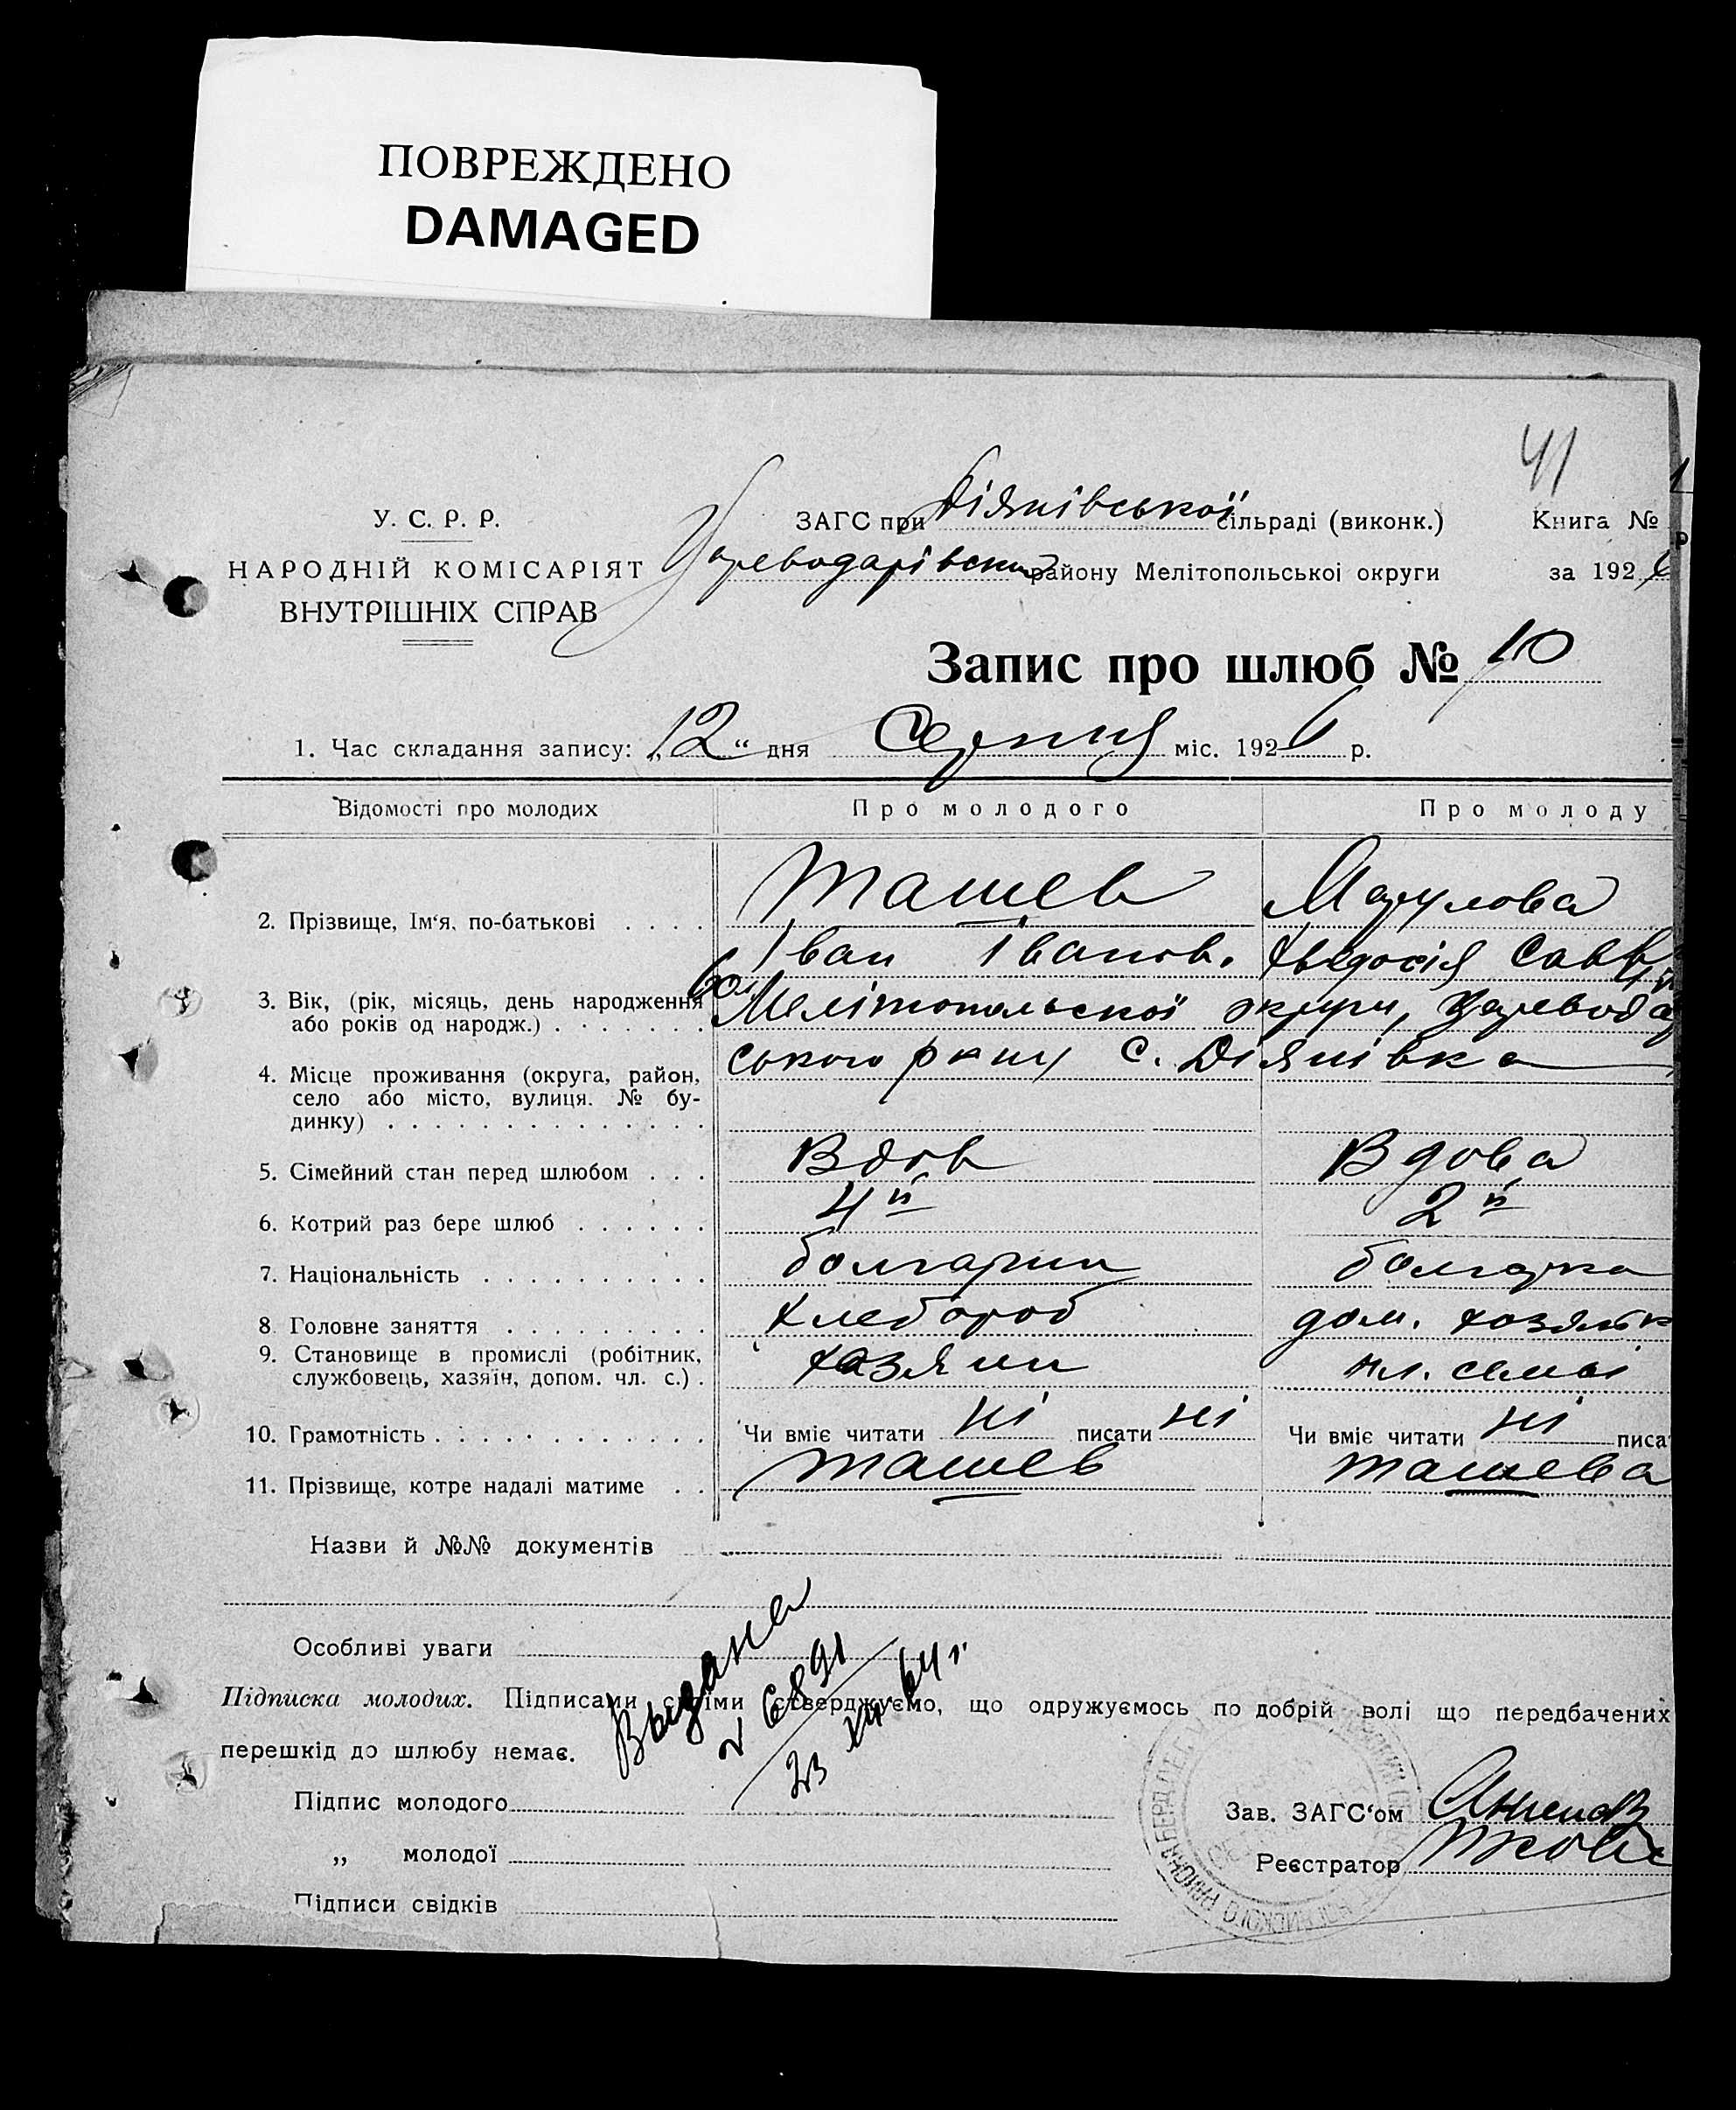 ПОВРЕЖДЕНО
DAMAGED
41
У. С. Р. Р.
НАРОДНІЙ КОМІСАРІЯТ
ВНУТРІШНІХ СПРАВ
ЗАГС при Діянівської сільраді (виконк.)
Книга №
Цареводарівськ району Мелітопольськоі округи
за 1926
Запис про шлюб № 10
1. Час складання запису: „12“ дня Серпня міс. 1926 р.
Відомості про молодих
Про молодого
Про молоду
2. Прізвище, Ім‘я, по-батькові . . . .
Ташев
Іван Іванов.
Евдокія Савв
3. Вік, (рік, місяць, день народження або років од народж.) . . . . . . .
60
Мелітопольскої округи, Царевода
4. Місце проживання (округа, район, село або місто, вулиця. № будинку) . . . . . . . . . . . . . .
ського рну с. Діянівка
5. Сімейний стан перед шлюбом . . .
Вдов
Вдова
6. Котрий раз бере шлюб . . . . . .
4й
2й
7. Національність . . . . . . . . . .
болгарин
болгарка
8. Головне заняття . . . . . . . . .
хлебороб
дом. хозяйк
9. Становище в промислі (робітник, службовець, хазяїн, допом. чл. с.) .
хазяин
чл. семьі
10. Грамотність . . . . . . . . . . . .
Чи вміє читати ні писати ні
Чи вміє читати ні писа
11. Прізвище, котре надалі матиме . .
Ташев
Ташева
Назви й №№ документів
Особливі уваги
Выдано
№ 6891
23 XII 64 г.
Підписка молодих. Підписами своїми стверджуємо, що одружуємось по добрій волі що передбачених
перешкід до шлюбу немає.
Підпис молодого
Зав. ЗАГС‘ом
„ молодої
Реєстратор
Підписи свідків